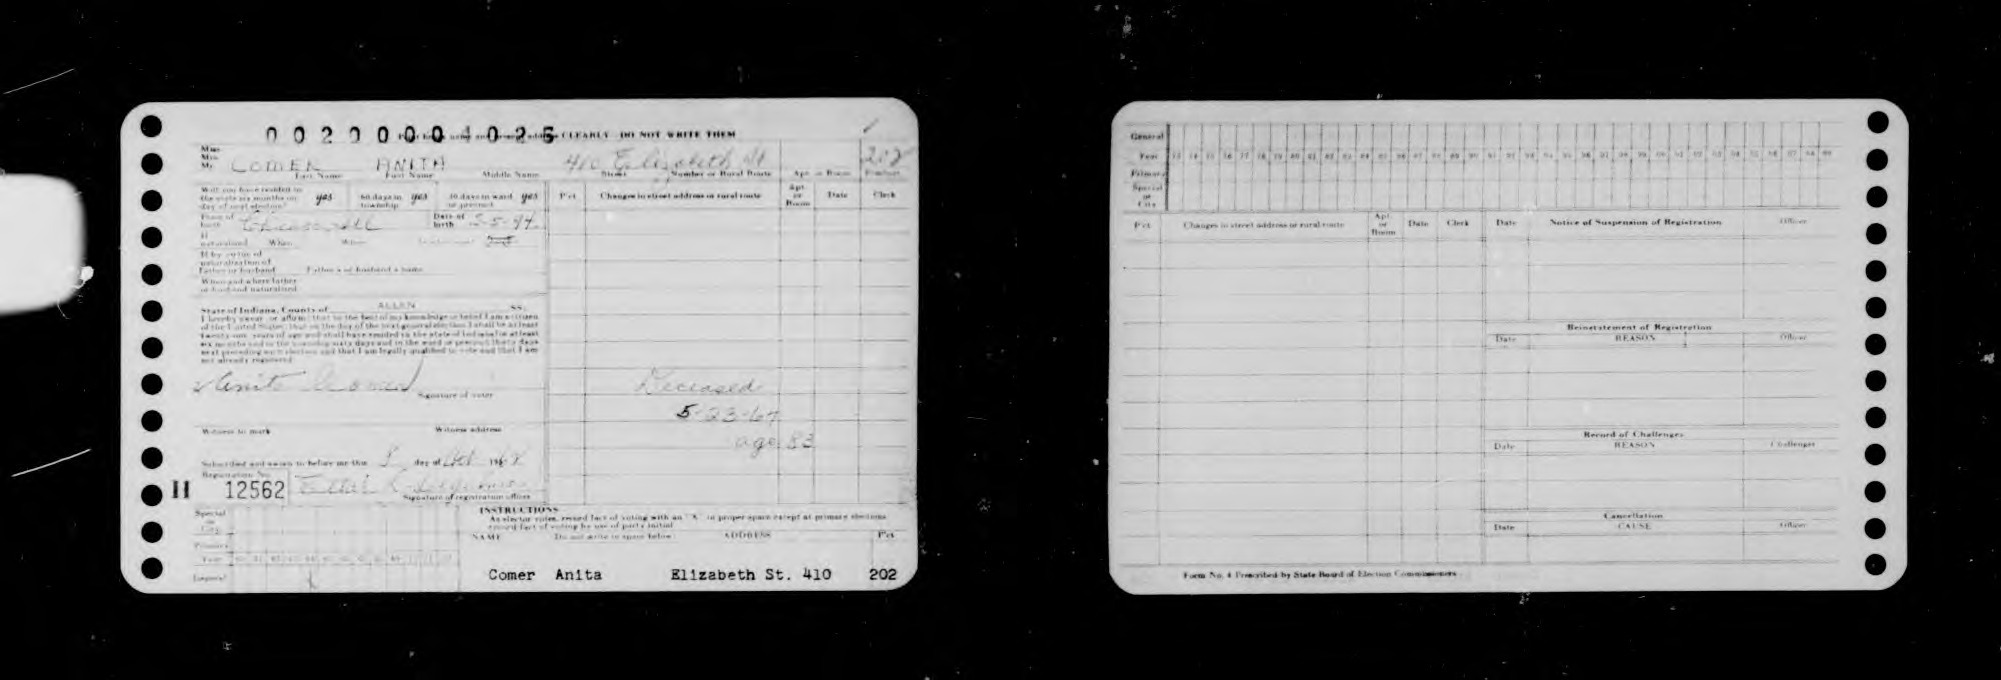 00200004026
CLEARLY DO NOT WRITE THEM
Miss
Mrs.
Mr.
COMER ANITA 410 Elizabeth St 202
Last Name First Name Middle Name Street Number or Rural Route Apt. or Room Precinct
Will you have resided in
the state six months on
day of next election? yes 60 days in township yes 30 days in ward or precinct yes
Pct Changes in street address or rural route Apt. or Room Date Clerk
Place of birth
Date of birth
If naturalized When Where
If by virtue of
naturalization of
Father or husband Father's or husband's name
When and where father
or husband naturalized
ALLEN
State of Indiana, County of SS:
I hereby swear or affirm that to the best of my knowledge or belief I am a citizen
of the United States; that on the day of the next general election I shall be at least
twenty-one years of age and shall have resided in the state of Indiana for at least
six months and in the township sixty days and in the ward or precinct thirty days
next preceding such election and that I am legally qualified to vote and that I am
not already registered
Anita Comer
Signature of voter
Deceased
5-23-67
age 83
Witness to mark Witness address
Subscribed and sworn to before me this day of Oct
Registration No.
H 12562
Signature of registration officer
INSTRUCTIONS
As elector votes, record fact of voting with an "X" in proper space except at primary elections
record fact of voting by use of party initial
NAME Do not write in space below ADDRESS Pct
Special
or
City
Primary
Year
General
X
Comer Anita Elizabeth St. 410 202
General
Year
Primary
Special
or
City
Pct Changes in street address or rural route Apt. or Room Date Clerk
Date Notice of Suspension of Registration Officer
Reinstatement of Registration
Date REASON Officer
Record of Challenges
Date REASON Challenger
Cancellation
Date CAUSE Officer
Form No. 4 Prescribed by State Board of Election Commissioners